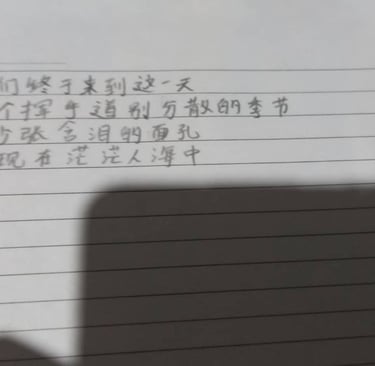 们终于来到这一天
个挥手道别分散的季节
张含泪的面孔
现在茫茫人海中